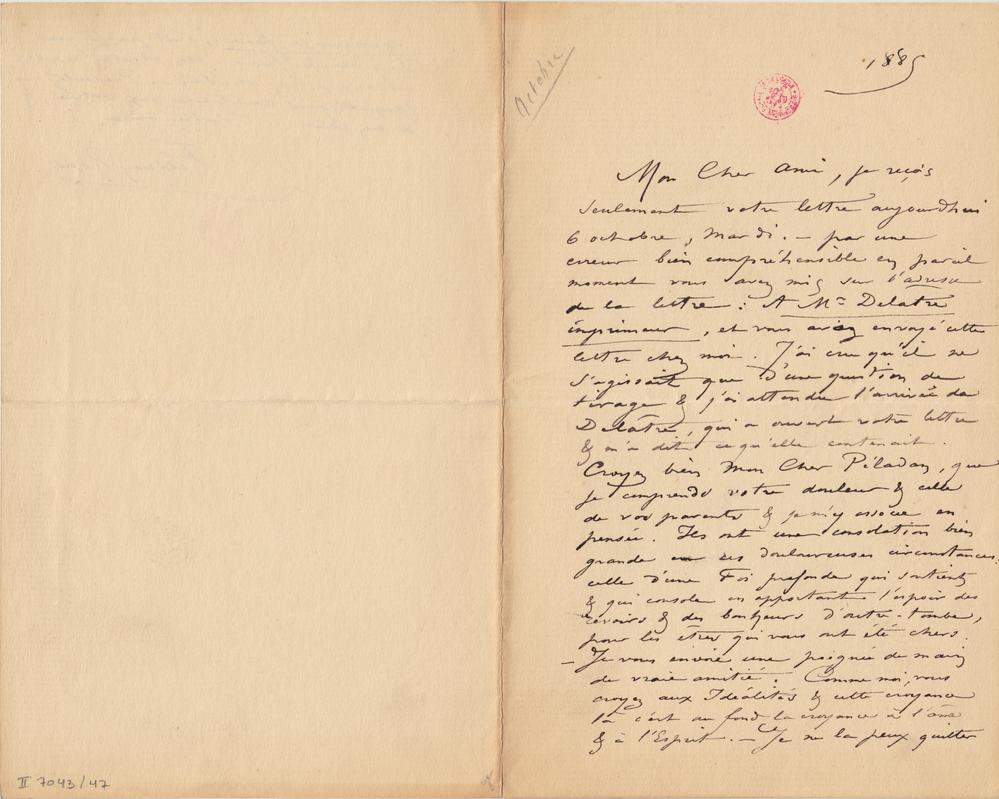 Octobre
1885
Mon Cher Ami, je reçois
seulement votre lettre aujourdhui
6 octobre, mardi. – par une
erreur bien compréhensible en pareil
moment vous avez mis sur l'adresse
de la lettre : A Mr Delatre
imprimeur, et vous avez envoyé cette
lettre chez moi. J'ai cru qu'il ne
s'agissait que d'une question de
tirage & j'ai attendu l'arrivée de
Delâtre, qui a ouvert votre lettre
& m'a dit ce qu'elle contenait.
Croyez bien Mon Cher Péladan, que
je comprends votre douleur & celle
de vos parents & je m'y associe en
pensée. Ils ont une consolation bien
grande en ces douloureuses circonstances:
celle d'une Foi profonde qui soutient
& qui console en apportant l'espoir des
revoirs & des bonheurs d'outre-tombe,
pour les êtres qui vous ont été chers.
– Je vous envoie une poignée de main
de vraie amitié. Comme moi, vous
croyez aux Idéalités & cette croyance
là c'est au fond la croyance à l'âme
& à l'Esprit. – Je ne la peux quitter
II 7043/47